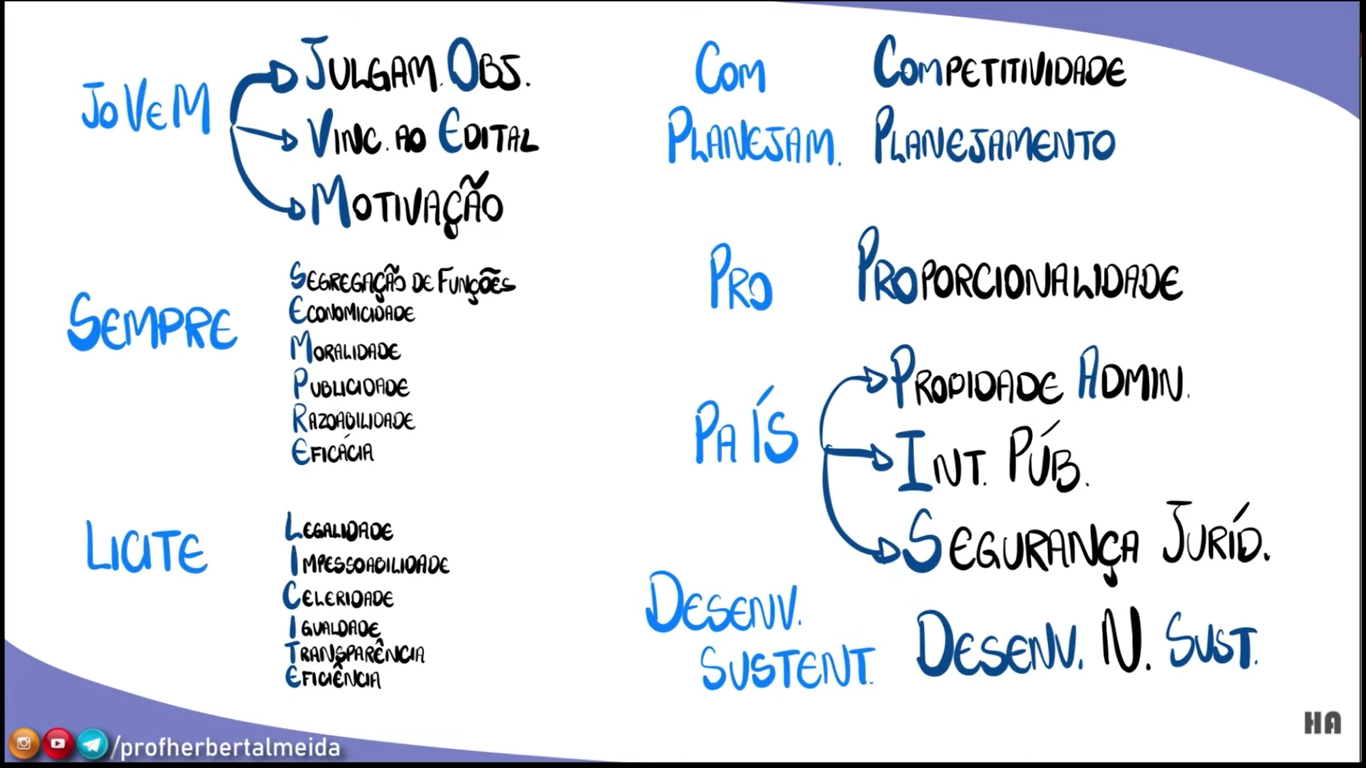 JOVEM
JULGAM. OBJ.
VINC. AO EDITAL
MOTIVAÇÃO
SEMPRE
SEGREGAÇÃO DE FUNÇÕES
ECONOMICIDADE
MORALIDADE
PUBLICIDADE
RAZOABILIDADE
EFICÁCIA
LICITE
LEGALIDADE
IMPESSOABILIDADE
CELERIDADE
IGUALDADE
TRANSPARÊNCIA
EFICIÊNCIA
COM
COMPETITIVIDADE
PLANEJAM.
PLANEJAMENTO
PRO
PROPORCIONALIDADE
PAÍS
PROPIDADE ADMIN.
INT. PÚB.
SEGURANÇA JURÍD.
DESENV.
SUSTENT.
DESENV. N. SUST.
HA
/profherbertalmeida